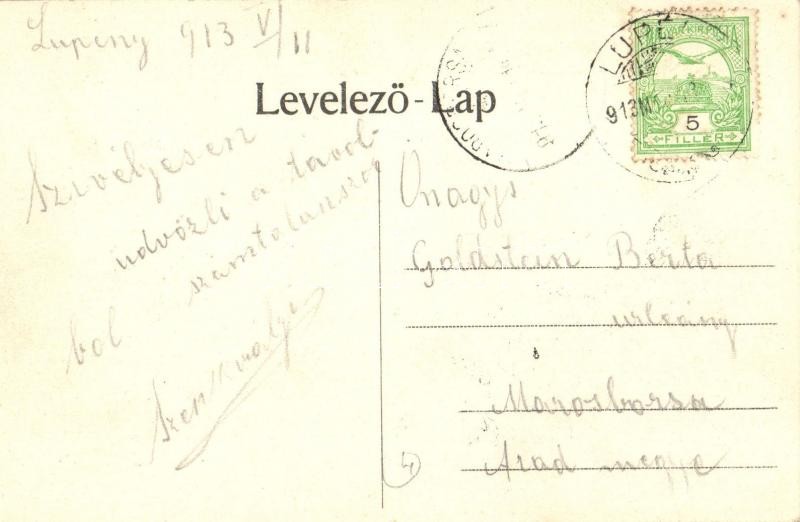 Lupény 913 V/11
Levelező-Lap
LUPÉ
913
MAGYAR KIR. POSTA
5
FILLÉR
Szivélyesen
üdvözli a távol-
ból számtalanszor
Szentkirályi
Önagys
Goldstein Berta
urleány
Marosborsa
Arad megye
4